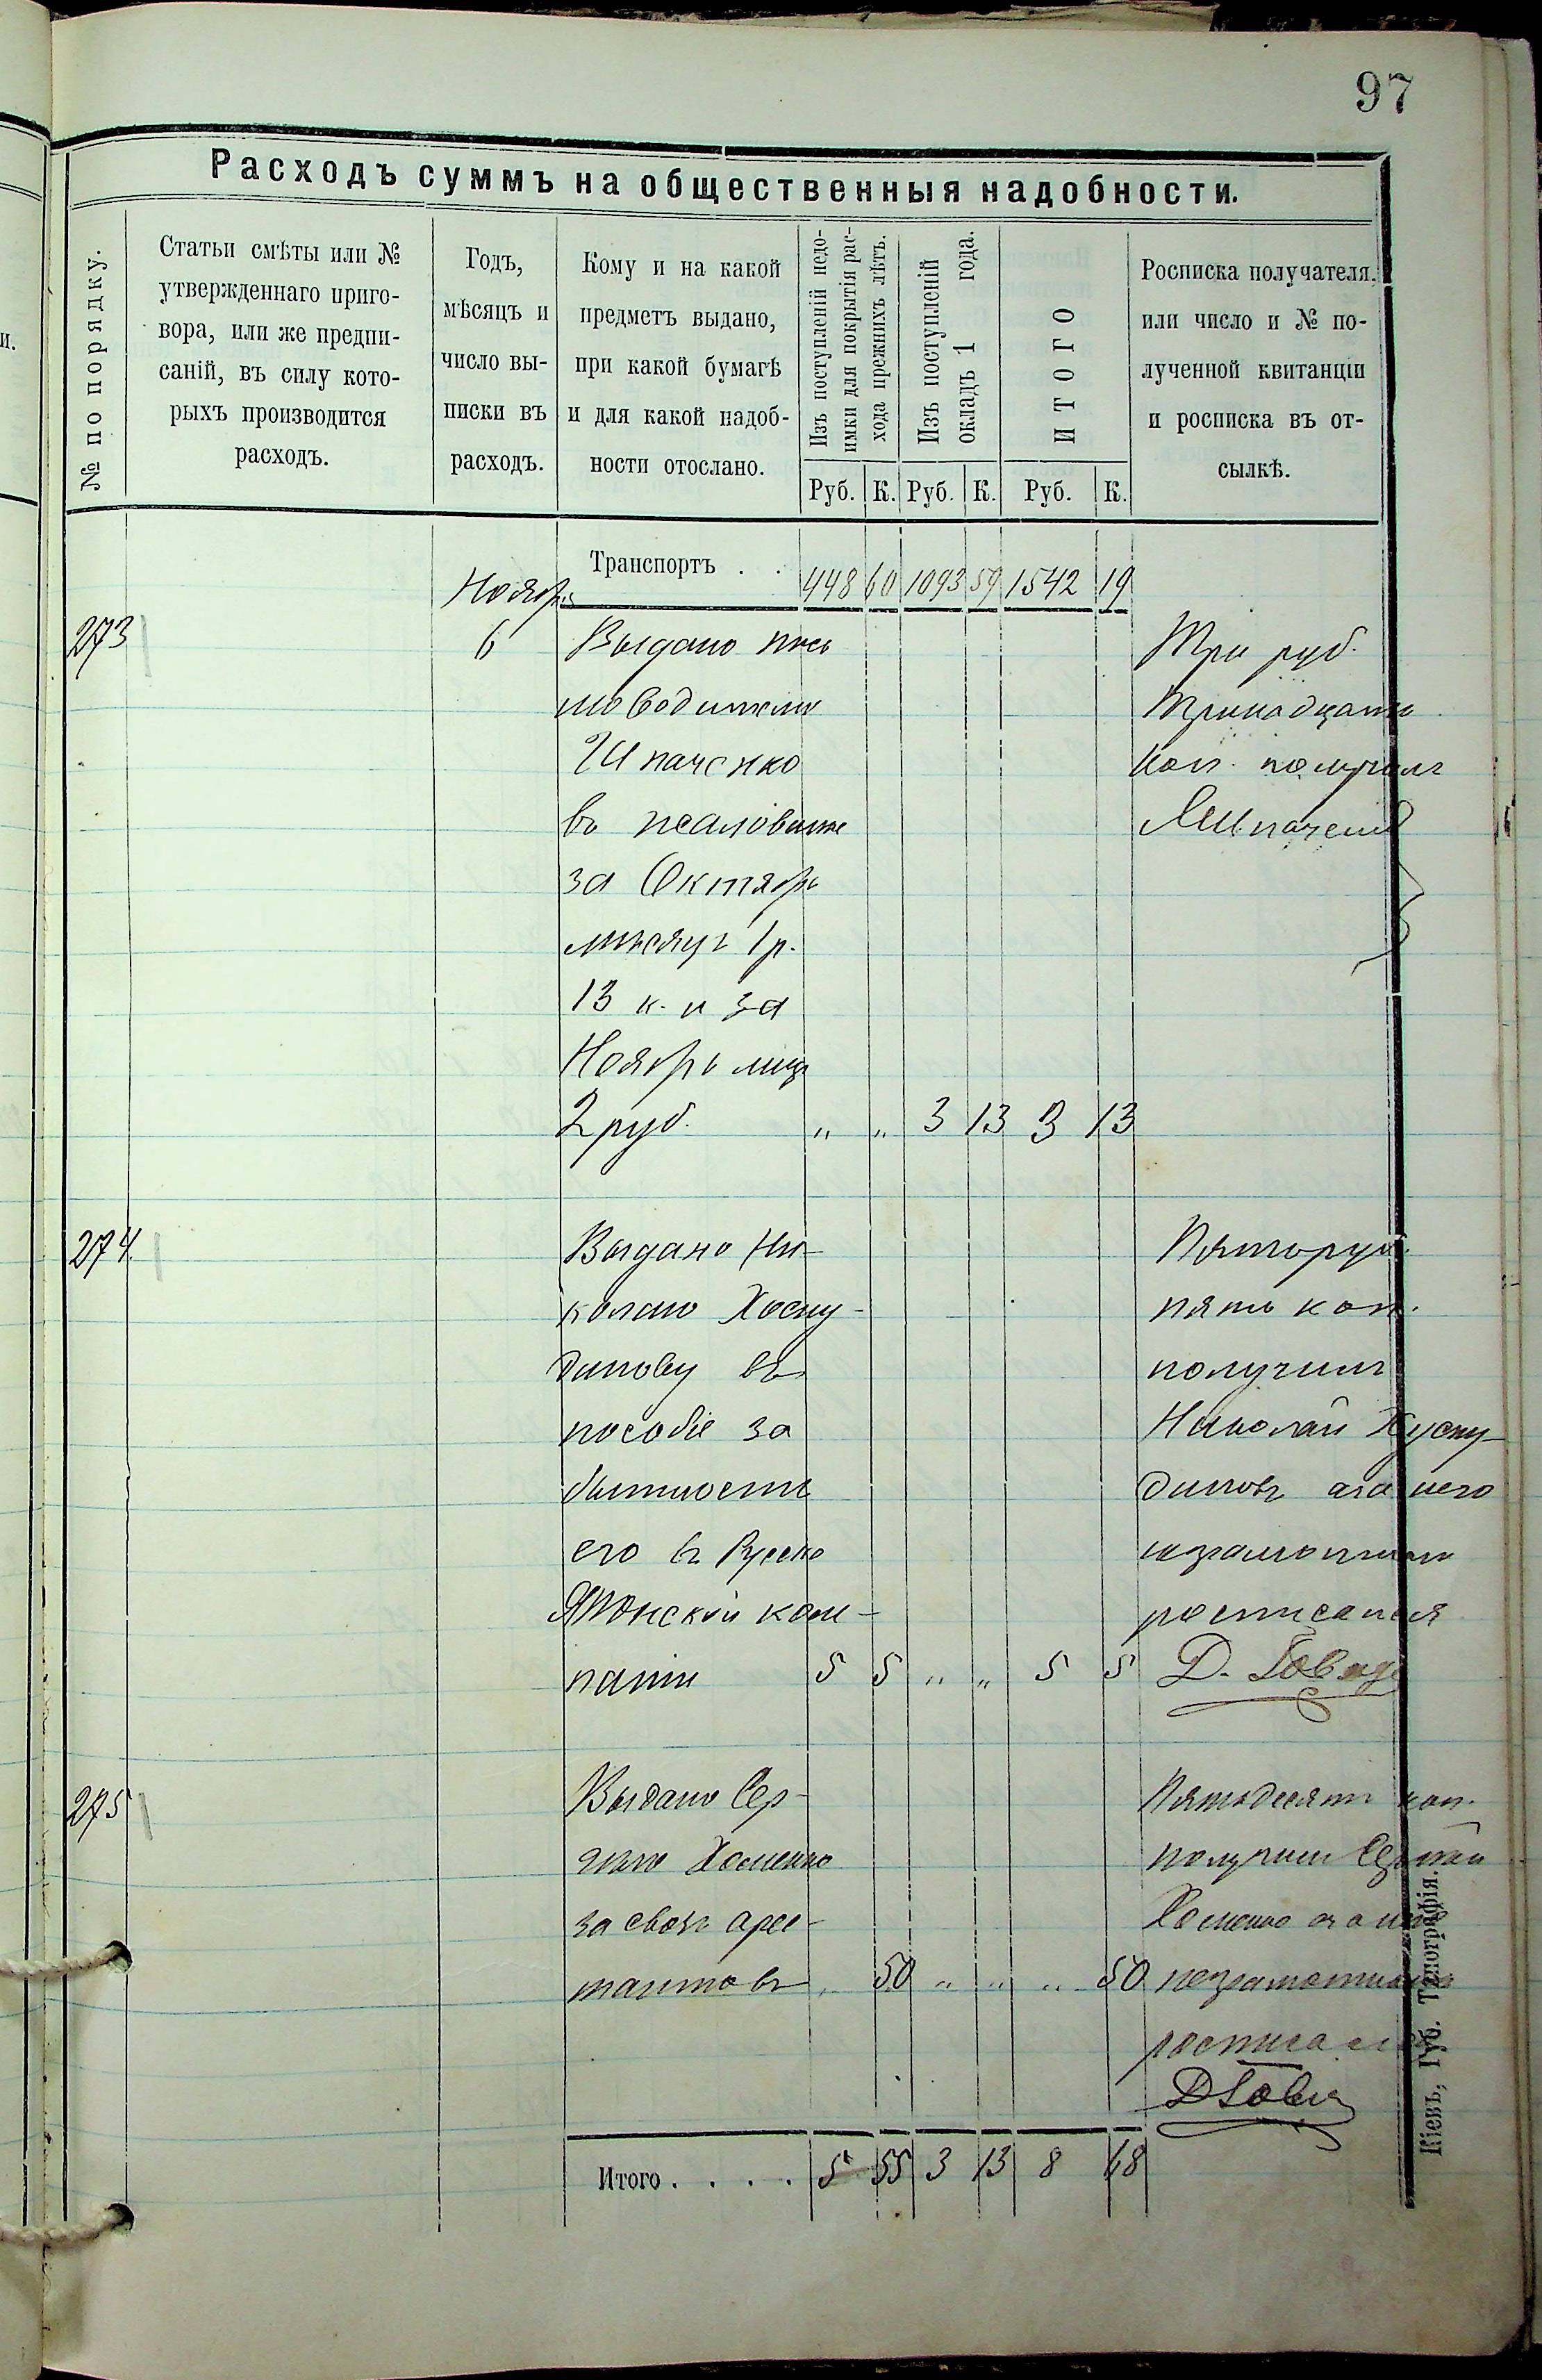 97
Расходъ суммъ на общественныя надобности.
№ по порядку.
Статьи смѣты или №
утвержденнаго приго-
вора, или же предпи-
саній, въ силу кото-
рыхъ производится
расходъ.
Годъ,
мѣсяцъ и
число вы-
писки въ
расходъ.
Кому и на какой
предметъ выдано,
при какой бумагѣ
и для какой надоб-
ности отослано.
Изъ поступленій недо-
имки для покрытія рас-
хода прежнихъ лѣтъ.
Изъ поступленій
окладъ 1 года.
ИТОГО
Росписка получателя,
или число и № по-
лученной квитанціи
и росписка въ от-
сылкѣ.
Руб. К. Руб. К. Руб. К.
Транспортъ . . 448 60 1093 59 1542 19
Ноября
273 6 Выдано пись
моводителю
Шпаченко
въ жалованье
за Октябрь
мѣсяцъ 1 р.
13 к. и за
Ноябрь мцъ
2 руб. „ „ 3 13 3 13
Три руб.
тринадцать
коп. получилъ
Шпаченко
274. Выдано Ни-
колаю Хоску-
динову въ
пособіе за
бытность
его въ Русско
Японской ком-
паніи 5 5 „ „ 5 5
Пять руб.
пять коп.
получилъ
Николай Хуску-
диновъ а за него
неграмотнаго
росписался
Д.
275 Выдано Сер-
гѣю Хоменко
за свозъ арес-
тантовъ „ 50 „ „ „ 50
Пятьдесятъ коп.
получилъ Сергѣй
Хоменко а за него
неграмотнаго
росписался
Итого . . . . 5 55 3 13 8 68
Кіевъ, Губ. Типографія.